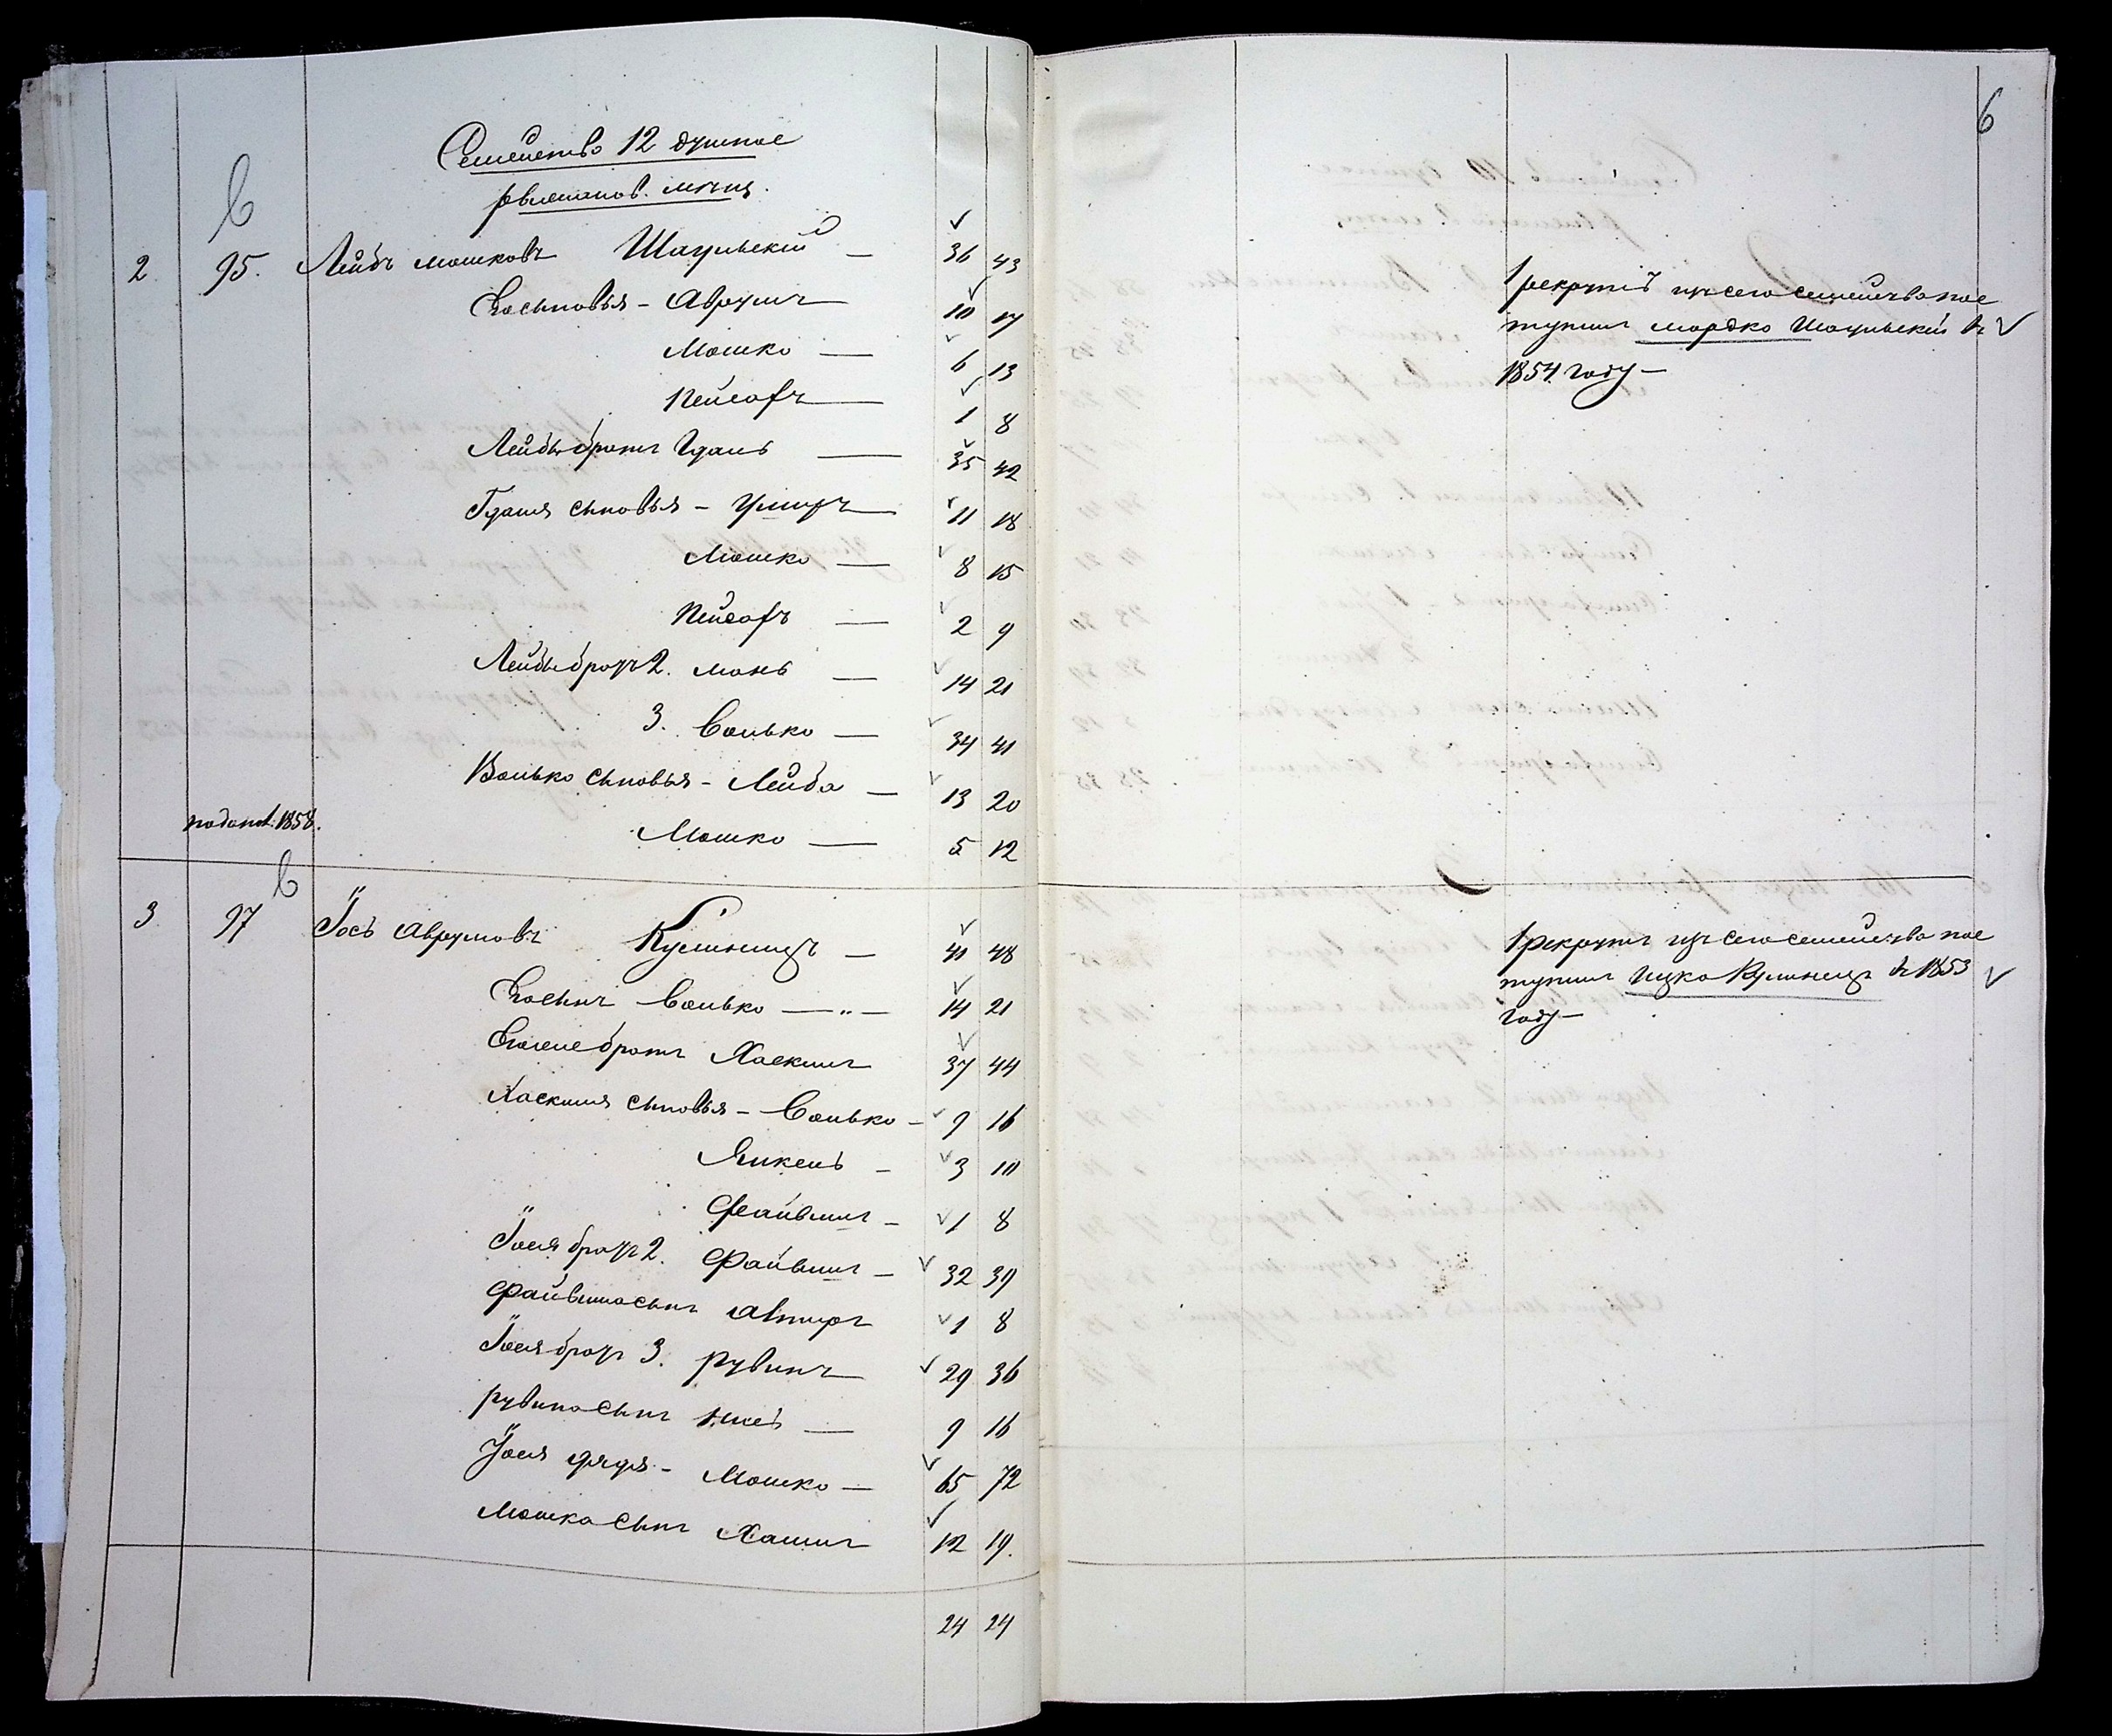 6
Семейство 12 душное
6
2 95. Лейбъ Мошковъ Шаульскій — 36 43
Его сыновья - Аврумъ 10 17
Мошко — 6 13
Пейсахъ — 1 8
Лейбы братъ Гдаль — 35 42
Гдаля сыновья - Ушеръ 11 18
Мошко — 8 15
Пейсахъ — 2 9
Лейбы братъ 2. Мань — 14 21
3. Волько — 34 41
Волько сыновья - Лейба — 13 20
1858. Мошко — 5 12
1 рекрутъ изъ сего семейства пос
тупилъ Мордко Шаульскій въ
1854 году —
6
3 97 Іось Аврумовъ — 41 48
Его сынъ Волько — " — 14 21
братъ Хаскиль 37 44
Хаскиля сыновья - Волько - 9 16
Янкель - 3 10
Файвишъ - 1 8
Іося братъ 2. Файвишъ - 32 39
Файвиша сынъ 1 8
Іося братъ 3. Рувинъ 29 36
Рувина сынъ — 9 16
Іося дядя - Мошко — 65 72
Мошка сынъ Хаимъ 12 19.
24 24
1 рекрутъ изъ сего семейства пос
тупилъ Ицко въ 1853
году —